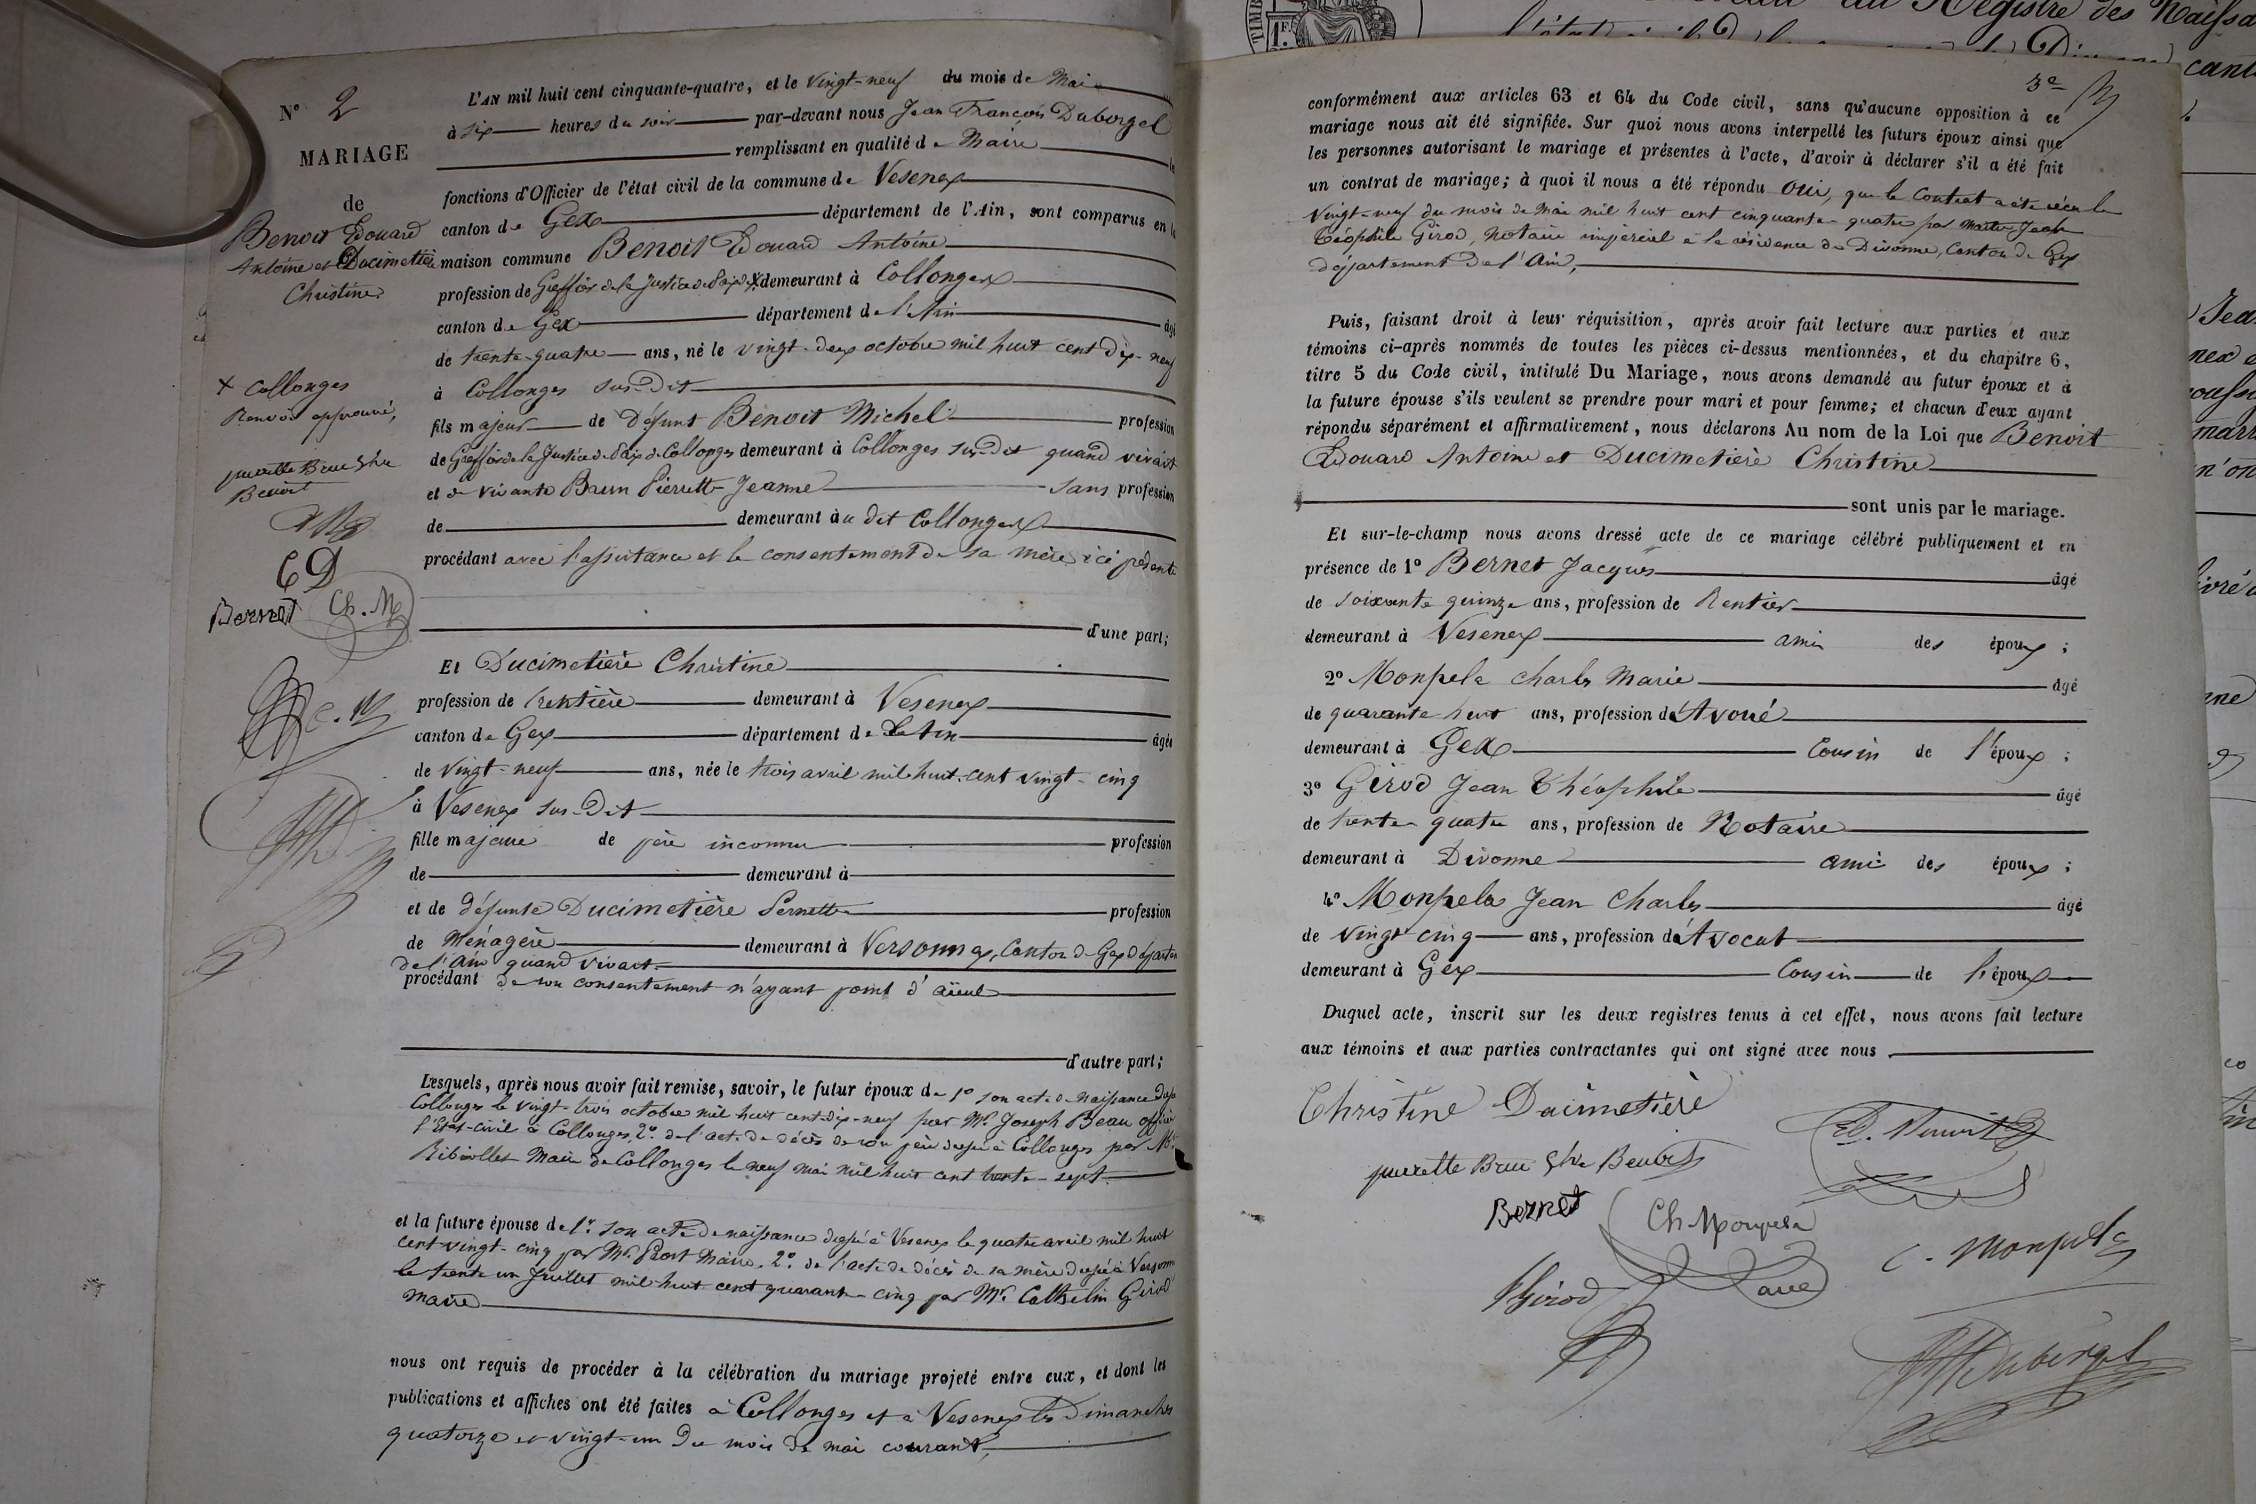 N° 2
MARIAGE
de
Benoit Edouard
Antoine et Ducimetière
Christine
+ Collonges
Renvoi approuvé,
pierrette Brun Vve
Benoit
C D
Bernet Ch. M
C. M
L'AN mil huit cent cinquante-quatre, et le vingt-neuf du mois de Mai
à six heures du soir par-devant nous Jean François Duborgel
remplissant en qualité de Maire
fonctions d'Officier de l'état civil de la commune de Vesenex
canton de Gex département de l'Ain, sont comparus en la
maison commune Benoit Edouard Antoine
profession de Greffier de la Justice de Paix de + demeurant à Collonges
canton de Gex département de l'Ain âgé
de trente-quatre ans, né le vingt-deux octobre mil huit cent dix-neuf
à Collonges sus-dit
fils majeur de défunt Benoit Michel profession
de Greffier de la Justice de Paix de Collonges demeurant à Collonges sus-dit quand vivait
et de vivante Brun Pierrette Jeanne sans profession
de demeurant au dit Collonges
procédant avec l'assistance et le consentement de sa mère ici présente
d'une part;
Et Ducimetière Christine
profession de rentière demeurant à Vesenex
canton de Gex département de l'Ain âgée
de vingt-neuf ans, née le trois avril mil huit-cent vingt-cinq
à Vesenex sus-dit
fille majeure de père inconnu profession
de demeurant à
et de défunte Ducimetière Pernette profession
de Ménagère demeurant à Versonnex, Canton de Gex départem
de l'Ain quand vivait
procédant de son consentement n'ayant point d'aïeul
d'autre part;
Lesquels, après nous avoir fait remise, savoir, le futur époux de 1° son acte de naissance
Collonges le vingt-trois octobre mil huit cent dix-neuf par Mr Joseph Beau officier
l'Etat-civil à Collonges, 2° de l'acte de décès de son père dressé à Collonges par Mr
Ribiollet Maire de Collonges le neuf mai mil huit cent trente-sept
et la future épouse de 1° son acte de naissance dressé à Vesenex le quatre avril mil huit
cent-vingt-cinq par Mr Maire, 2° de l'acte de décès de sa mère dressé à Versonn
le trente un Juillet mil huit cent quarante-cinq par Mr Cathelin Girod
Maire
nous ont requis de procéder à la célébration du mariage projeté entre eux, et dont les
publications et affiches ont été faites à Collonges et à Vesenex les Dimanches
quatorze et vingt-un du mois de mai courant,
3e
conformément aux articles 63 et 64 du Code civil, sans qu'aucune opposition à ce
mariage nous ait été signifiée. Sur quoi nous avons interpellé les futurs époux ainsi que
les personnes autorisant le mariage et présentes à l'acte, d'avoir à déclarer s'il a été fait
un contrat de mariage; à quoi il nous a été répondu Oui, que le Contrat a été reçu le
vingt-neuf du mois de Mai mil huit cent cinquante-quatre par Maître Jean
Théophile Girod, Notaire impérial à la résidence de Divonne, Canton de Gex
département de l'Ain,
Puis, faisant droit à leur réquisition, après avoir fait lecture aux parties et aux
témoins ci-après nommés de toutes les pièces ci-dessus mentionnées, et du chapitre 6,
titre 5 du Code civil, intitulé Du Mariage, nous avons demandé au futur époux et à
la future épouse s'ils veulent se prendre pour mari et pour femme; et chacun d'eux ayant
répondu séparément et affirmativement, nous déclarons Au nom de la Loi que Benoit
Edouard Antoine et Ducimetière Christine
sont unis par le mariage.
Et sur-le-champ nous avons dressé acte de ce mariage célébré publiquement et en
présence de 1° Bernet Jacques âgé
de soixante quinze ans, profession de Rentier
demeurant à Vesenex ami des époux;
2° Monpela Charles Marie âgé
de quarante-huit ans, profession d'Avoué
demeurant à Gex Cousin de l'époux;
3° Girod Jean Théophile âgé
de trente-quatre ans, profession de Notaire
demeurant à Divonne ami des époux;
4° Monpela Jean Charles âgé
de vingt cinq ans, profession d'Avocat
demeurant à Gex Cousin de l'époux
Duquel acte, inscrit sur les deux registres tenus à cet effet, nous avons fait lecture
aux témoins et aux parties contractantes qui ont signé avec nous.
Christine Ducimetière
Ed. Benoit
pierrette Brun Vve Benoit
Bernet Ch Monpela
C. Monpela
Girod avoué
Duborgel